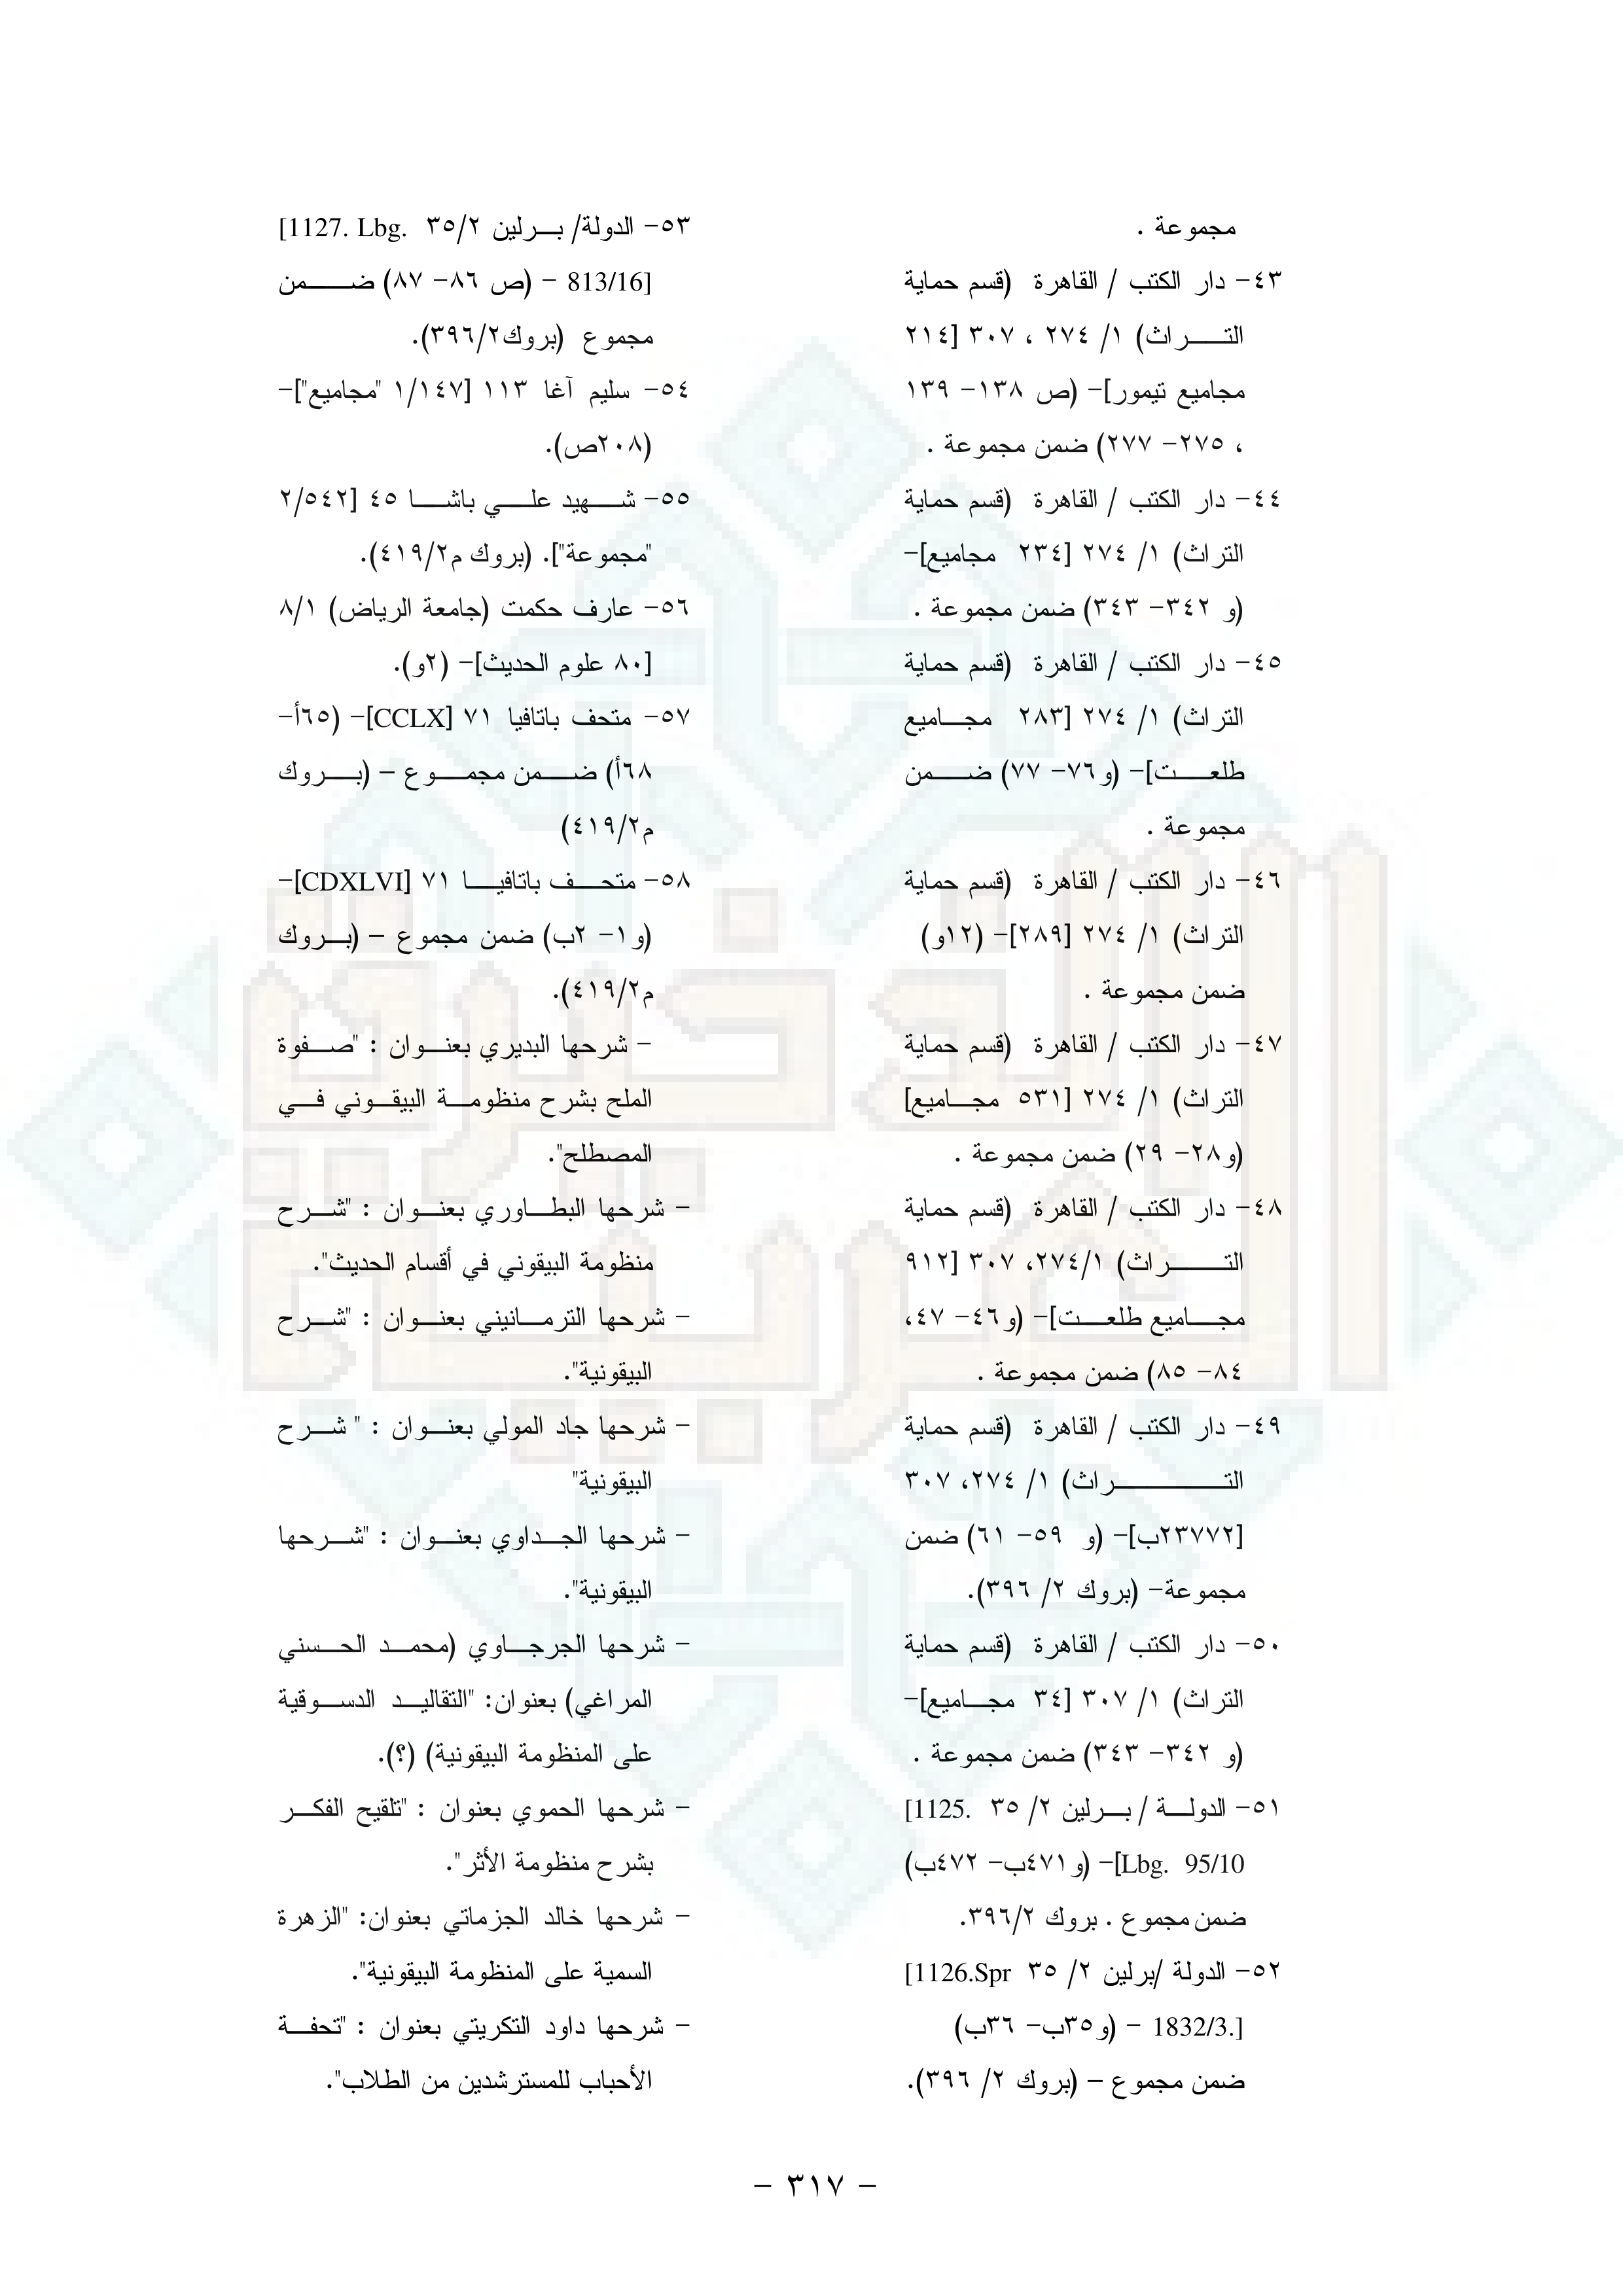 مجموعة .
٤٣- دار الكتب / القاهرة (قسم حماية
التراث) ١/ ٢٧٤ ، ٣٠٧ [٢١٤
مجاميع تيمور]- (ص ١٣٨- ١٣٩
، ٢٧٥- ٢٧٧) ضمن مجموعة .
٤٤- دار الكتب / القاهرة (قسم حماية
التراث) ١/ ٢٧٤ [٢٣٤ مجاميع]-
(و ٣٤٢- ٣٤٣) ضمن مجموعة .
٤٥- دار الكتب / القاهرة (قسم حماية
التراث) ١/ ٢٧٤ [٢٨٣ مجاميع
طلعت]- (و٧٦- ٧٧) ضمن
مجموعة .
٤٦- دار الكتب / القاهرة (قسم حماية
التراث) ١/ ٢٧٤ [٢٨٩]- (١٢و)
ضمن مجموعة .
٤٧- دار الكتب / القاهرة (قسم حماية
التراث) ١/ ٢٧٤ [٥٣١ مجاميع]
(و٢٨- ٢٩) ضمن مجموعة .
٤٨- دار الكتب / القاهرة (قسم حماية
التراث) ٢٧٤/١، ٣٠٧ [٩١٢
مجاميع طلعت]- (و٤٦- ٤٧،
٨٤- ٨٥) ضمن مجموعة .
٤٩- دار الكتب / القاهرة (قسم حماية
التراث) ١/ ٢٧٤، ٣٠٧
[٢٣٧٧٢ب]- (و ٥٩- ٦١) ضمن
مجموعة- (بروك ٢/ ٣٩٦).
٥٠- دار الكتب / القاهرة (قسم حماية
التراث) ١/ ٣٠٧ [٣٤ مجاميع]-
(و ٣٤٢- ٣٤٣) ضمن مجموعة .
٥١- الدولة / برلين ٢/ ٣٥ [1125.
Lbg. 95/10]- (و٤٧١ب- ٤٧٢ب)
ضمن مجموع . بروك ٣٩٦/٢.
٥٢- الدولة /برلين ٢/ ٣٥ [1126.Spr
1832/3.] - (و٣٥ب- ٣٦ب)
ضمن مجموع – (بروك ٢/ ٣٩٦).
٥٣- الدولة/ برلين ٣٥/٢ [1127. Lbg.
813/16] - (ص ٨٦- ٨٧) ضمن
مجموع (بروك٣٩٦/٢).
٥٤- سليم آغا ١١٣ [١/١٤٧ "مجاميع"]-
(٢٠٨ص).
٥٥- شهيد علي باشا ٤٥ [٢/٥٤٢
"مجموعة"]. (بروك م٤١٩/٢).
٥٦- عارف حكمت (جامعة الرياض) ٨/١
[٨٠ علوم الحديث]- (٢و).
٥٧- متحف باتافيا ٧١ [CCLX]- (٦٥أ-
٦٨أ) ضمن مجموع – (بروك
م٤١٩/٢)
٥٨- متحف باتافيا ٧١ [CDXLVI]-
(و١- ٢ب) ضمن مجموع – (بروك
م٤١٩/٢).
- شرحها البديري بعنوان : "صفوة
الملح بشرح منظومة البيقوني في
المصطلح".
- شرحها البطاوري بعنوان : "شرح
منظومة البيقوني في أقسام الحديث".
- شرحها الترمانيني بعنوان : "شرح
البيقونية".
- شرحها جاد المولي بعنوان : " شرح
البيقونية"
- شرحها الجداوي بعنوان : "شرحها
البيقونية".
- شرحها الجرجاوي (محمد الحسني
المراغي) بعنوان: "التقاليد الدسوقية
على المنظومة البيقونية) (؟).
- شرحها الحموي بعنوان : "تلقيح الفكر
بشرح منظومة الأثر".
- شرحها خالد الجزماتي بعنوان: "الزهرة
السمية على المنظومة البيقونية".
- شرحها داود التكريتي بعنوان : "تحفة
الأحباب للمسترشدين من الطلاب".
- ٣١٧ -